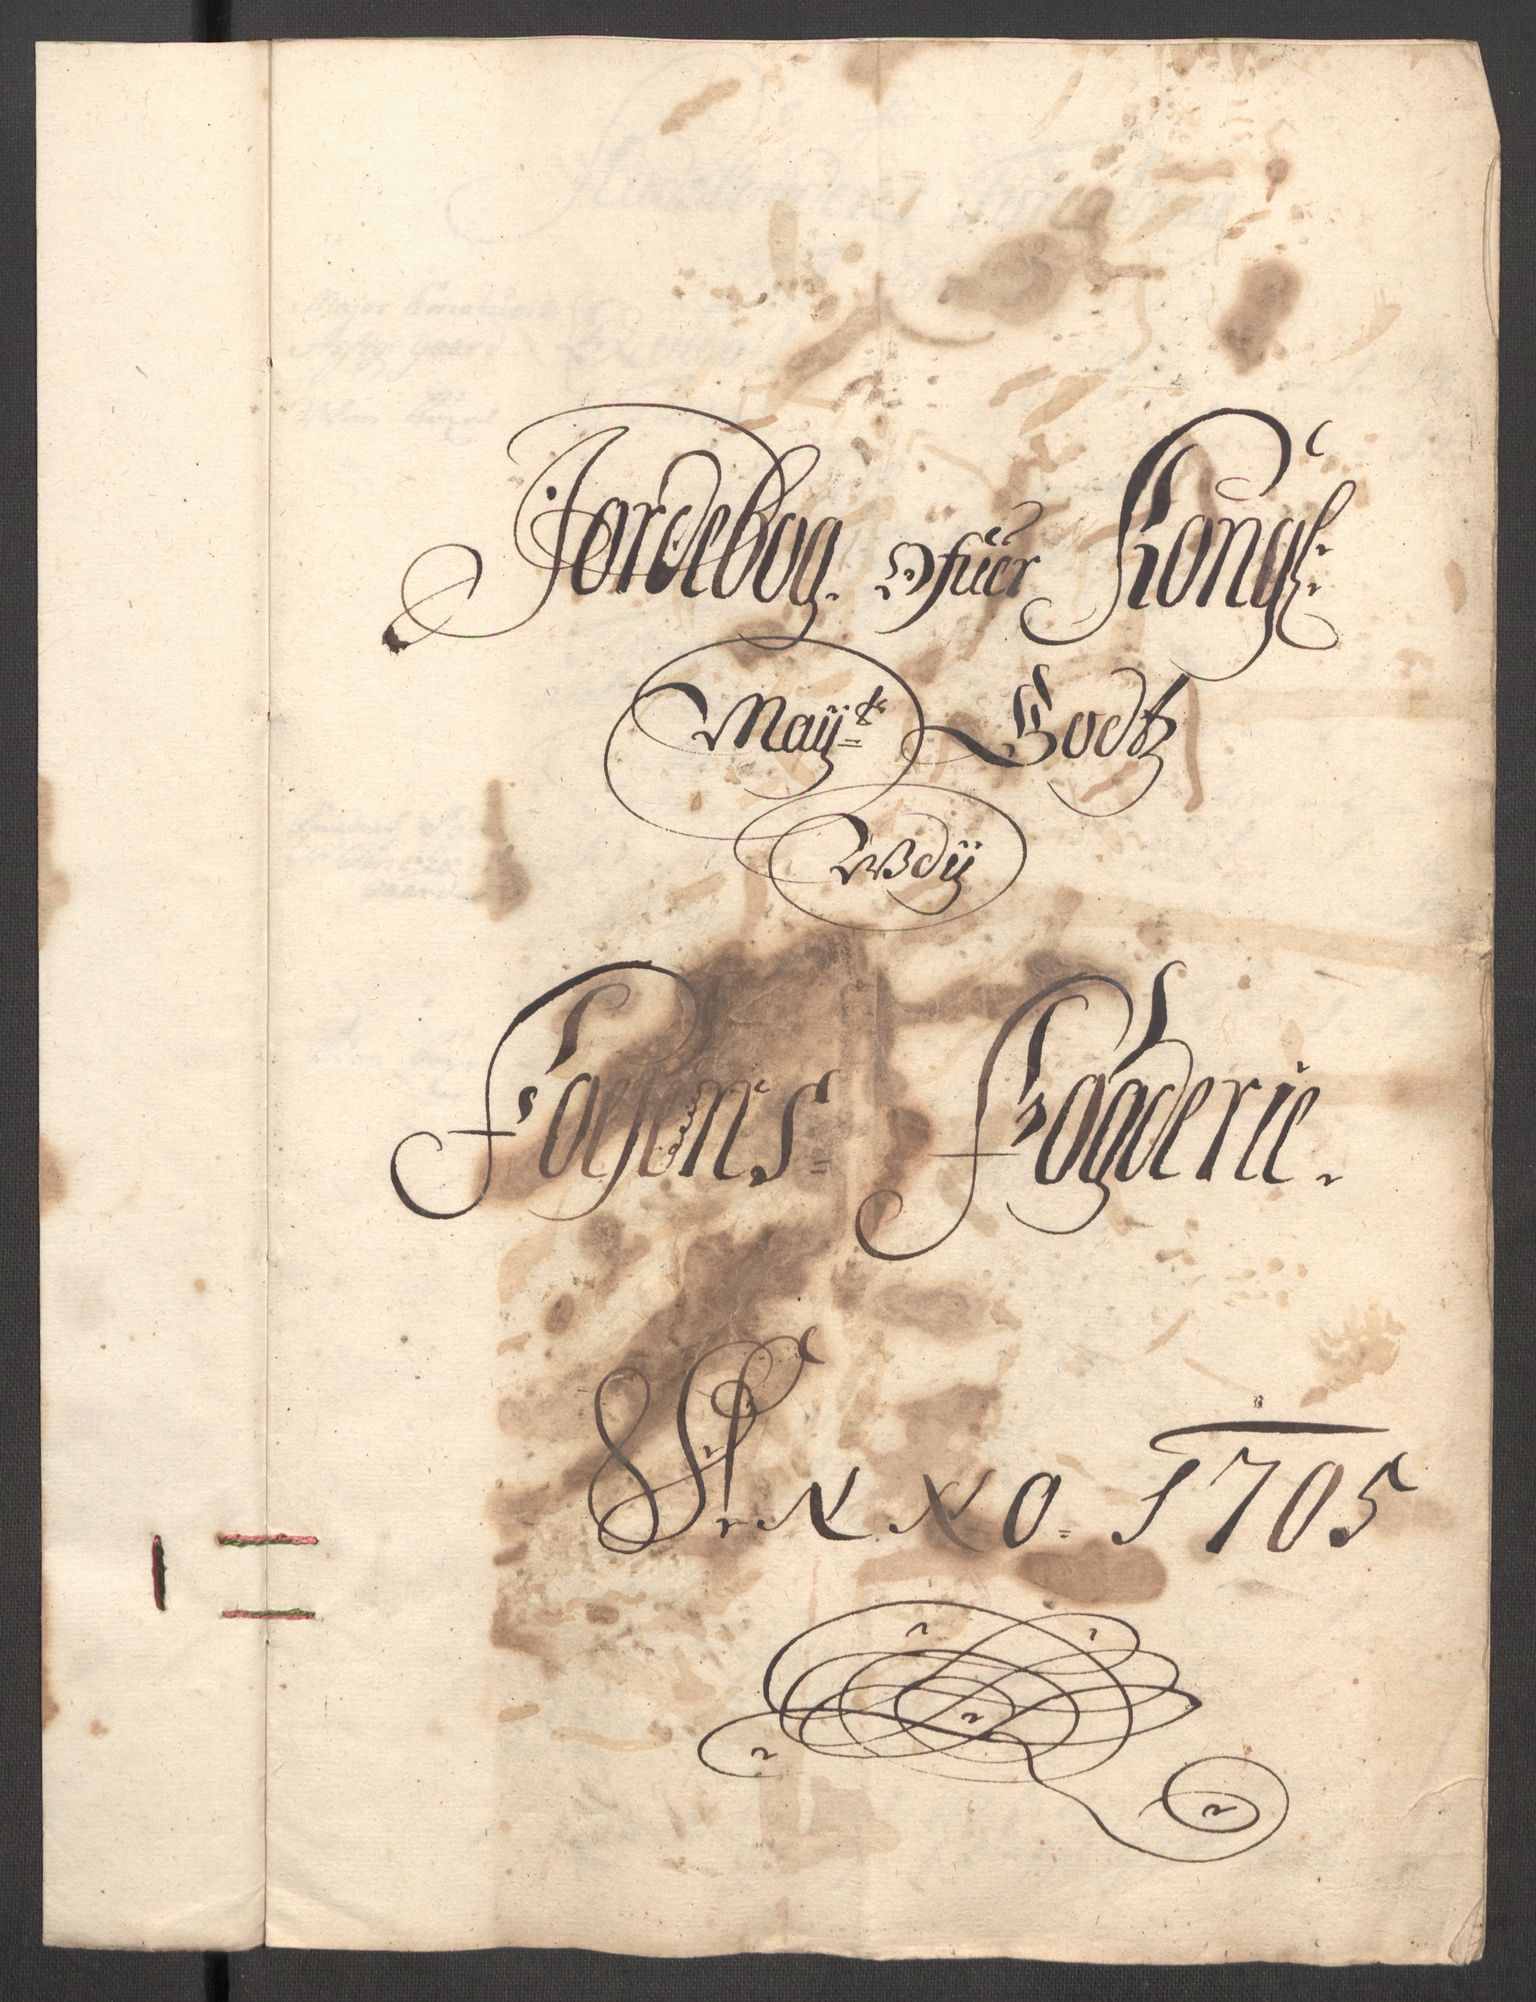 Jordebog ofuer Kongl:
Maÿ:ts Godtz
Udÿ
Fosens Fogderie.
Anno 1705